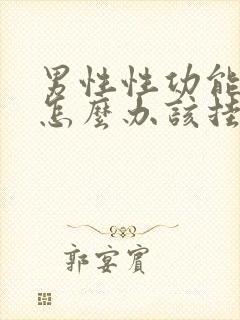 男性性功能
怎麼办該挂
郭宴賓